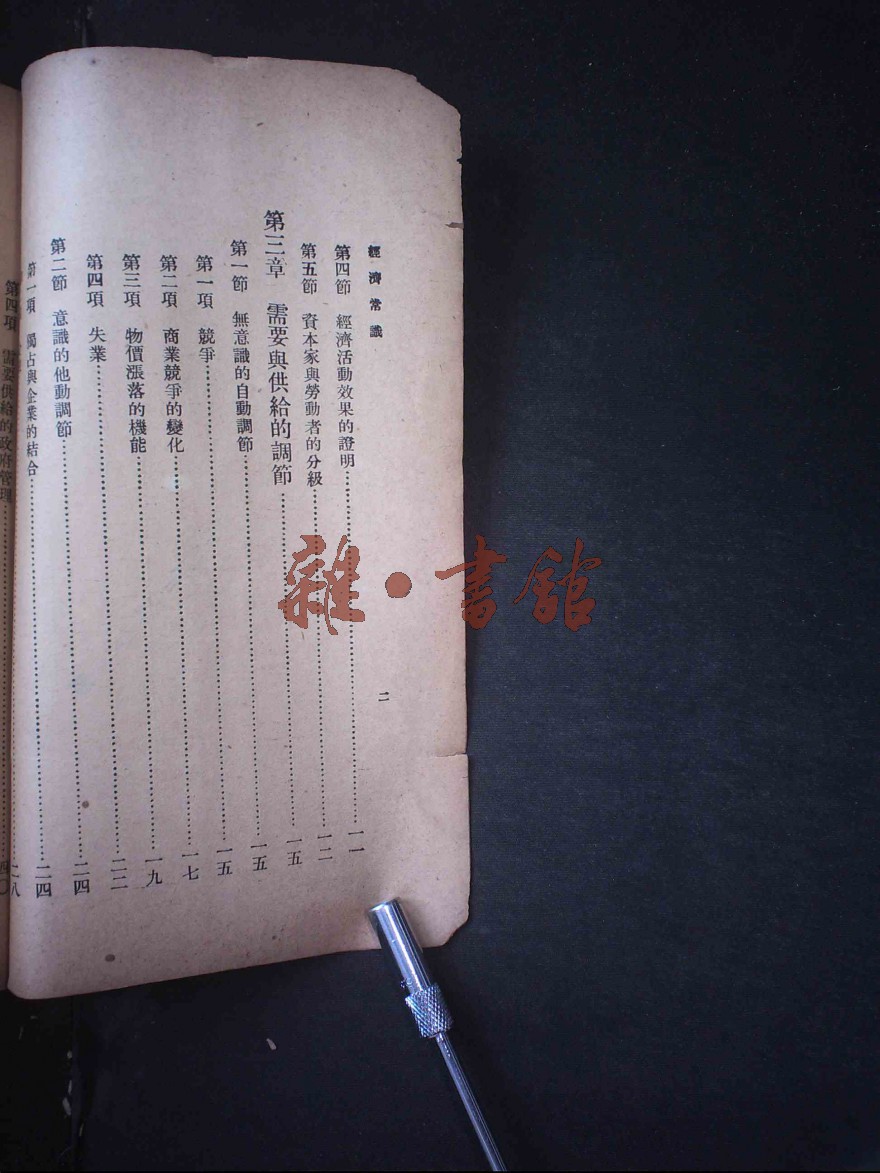 經濟常識 二
第四節 經濟活動效果的證明……………………一一
第五節 資本家與勞動者的分級……………………一二
第三章 需要與供給的調節……………………一五
第一節 無意識的自動調節……………………一五
第一項 競爭……………………一五
第二項 商業競爭的變化……………………一七
第三項 物價漲落的機能……………………一九
第四項 失業……………………二二
第二節 意識的他動調節……………………二四
第一項 獨占與企業的結合……………………二四
二八
第四項 需要供給的政府管理……………………四〇
雜·書館